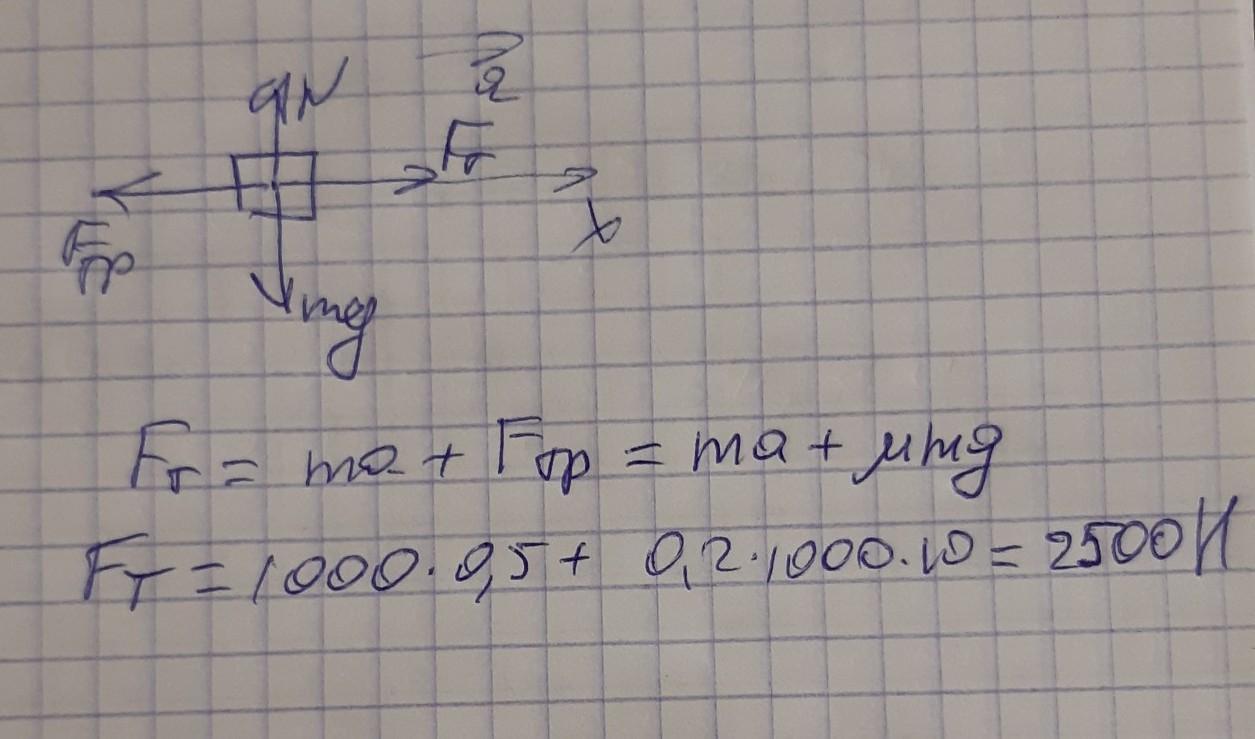 a
N
Fт
x
Fтр
mg
Fт = ma + Fтр = ma + μmg
Fт = 1000·0,5 + 0,2·1000·10 = 2500 Н